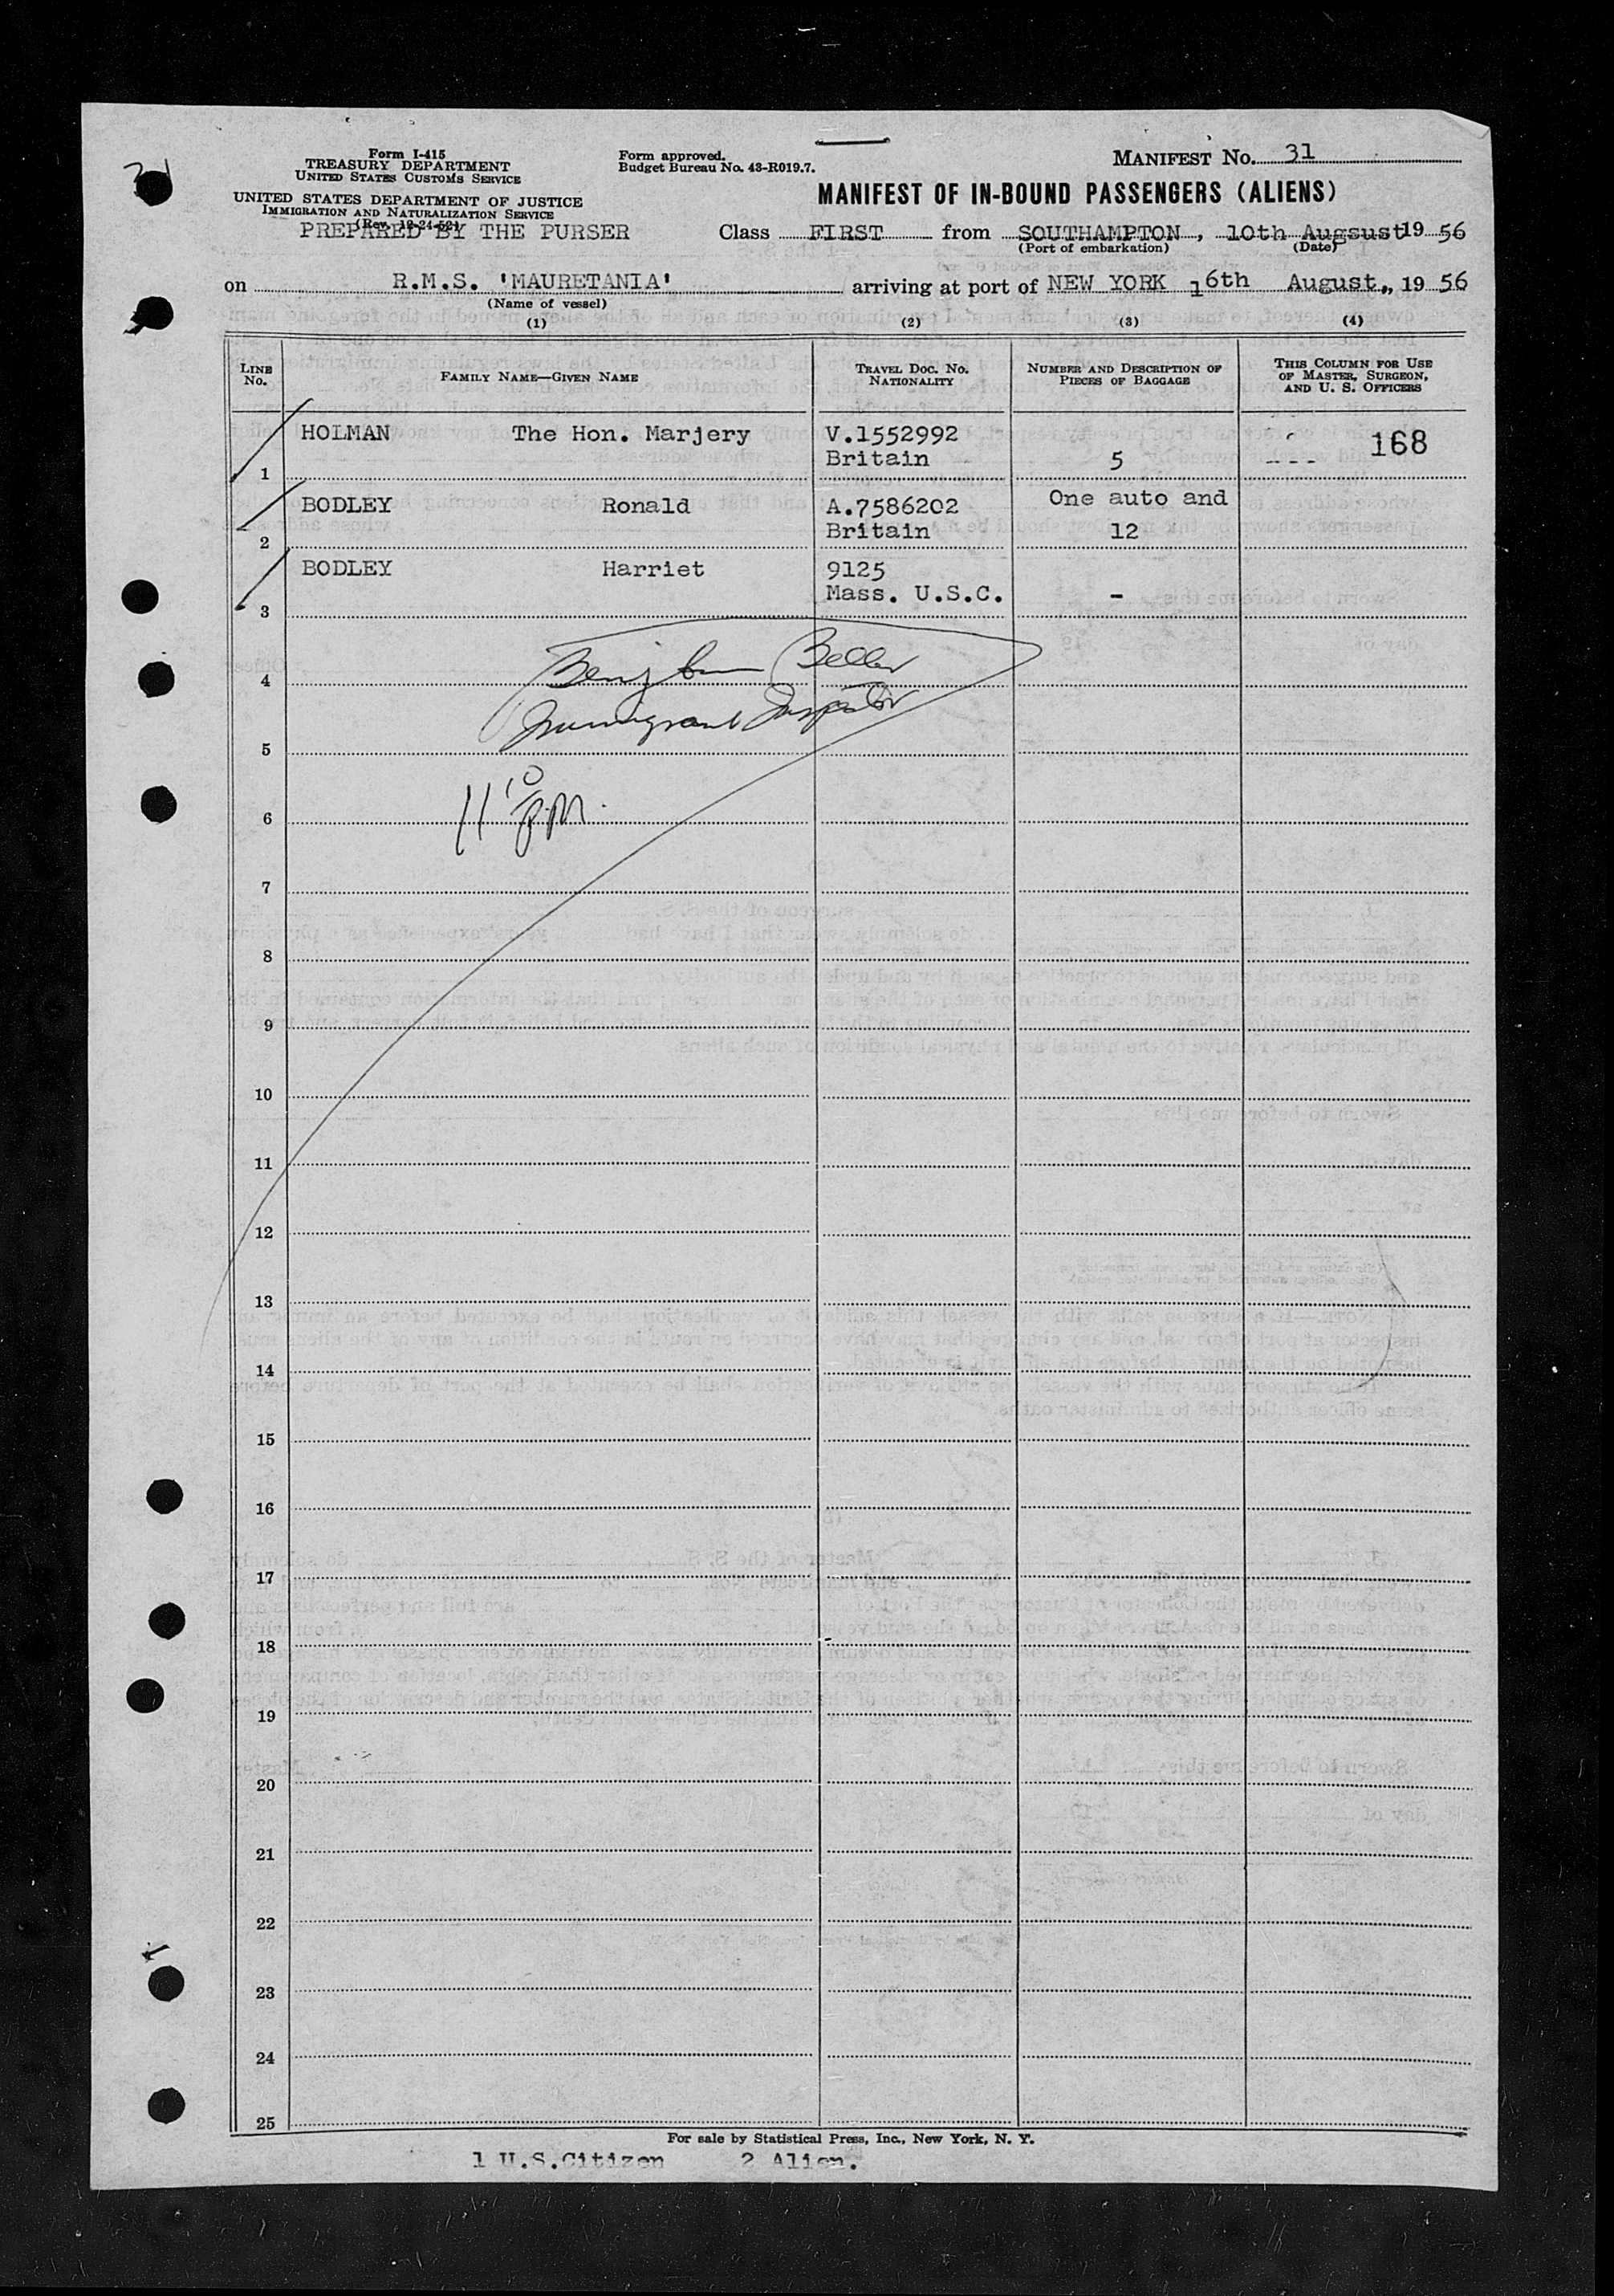 31
Form I-415
TREASURY DEPARTMENT
UNITED STATES CUSTOMS SERVICE
UNITED STATES DEPARTMENT OF JUSTICE
IMMIGRATION AND NATURALIZATION SERVICE
(Rev. 12-24-52)
PREPARED BY THE PURSER
Form approved.
Budget Bureau No. 43-R019.7.
MANIFEST NO. 31
MANIFEST OF IN-BOUND PASSENGERS (ALIENS)
Class FIRST from SOUTHAMPTON, 10th Augsust 19 56
(Port of embarkation) (Date)
on R.M.S. 'MAURETANIA' arriving at port of NEW YORK 16th August, 19 56
(Name of vessel)
(1) (2) (3) (4)
LINE NO. FAMILY NAME—GIVEN NAME TRAVEL DOC. NO. NATIONALITY NUMBER AND DESCRIPTION OF PIECES OF BAGGAGE THIS COLUMN FOR USE OF MASTER, SURGEON, AND U. S. OFFICERS
HOLMAN The Hon. Marjery V.1552992 168
1 Britain 5 ---
BODLEY Ronald A.7586202 One auto and
2 Britain 12
BODLEY Harriet 9125
3 Mass. U.S.C. -
4
Immigrant Inspector
5
11 10 P.M.
6
7
8
9
10
11
12
13
14
15
16
17
18
19
20
21
22
23
24
25
For sale by Statistical Press, Inc., New York, N. Y.
1 U.S.Citizen 2 Alien.